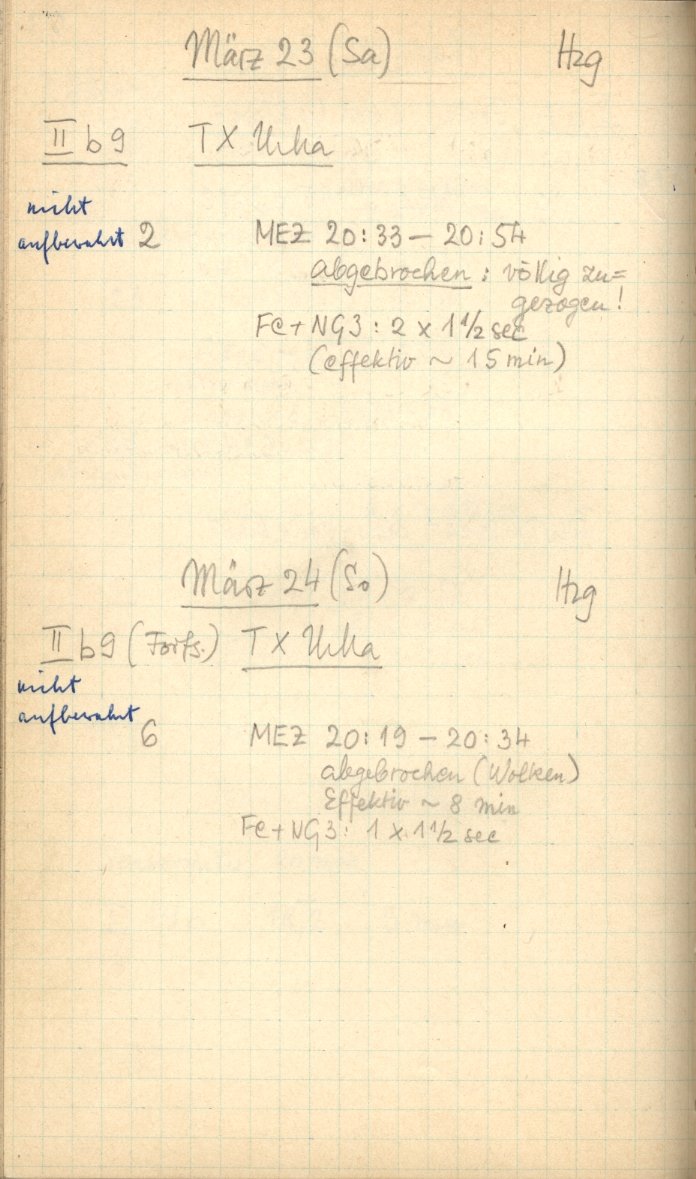 März 23 (Sa) Hzg
II b 9 TX UMa
nicht
aufbewahrt 2 MEZ 20:33 – 20:54
abgebrochen : völlig zu=
gezogen!
Fe + NG3 : 2 x 1 1/2 sec
(effektiv ~ 15 min)
März 24 (So) Hzg
II b 9 (Forts.) TX UMa
nicht
aufbewahrt
6 MEZ 20:19 – 20:34
abgebrochen (Wolken)
Effektiv ~ 8 min
Fe + NG3 : 1 x 1 1/2 sec